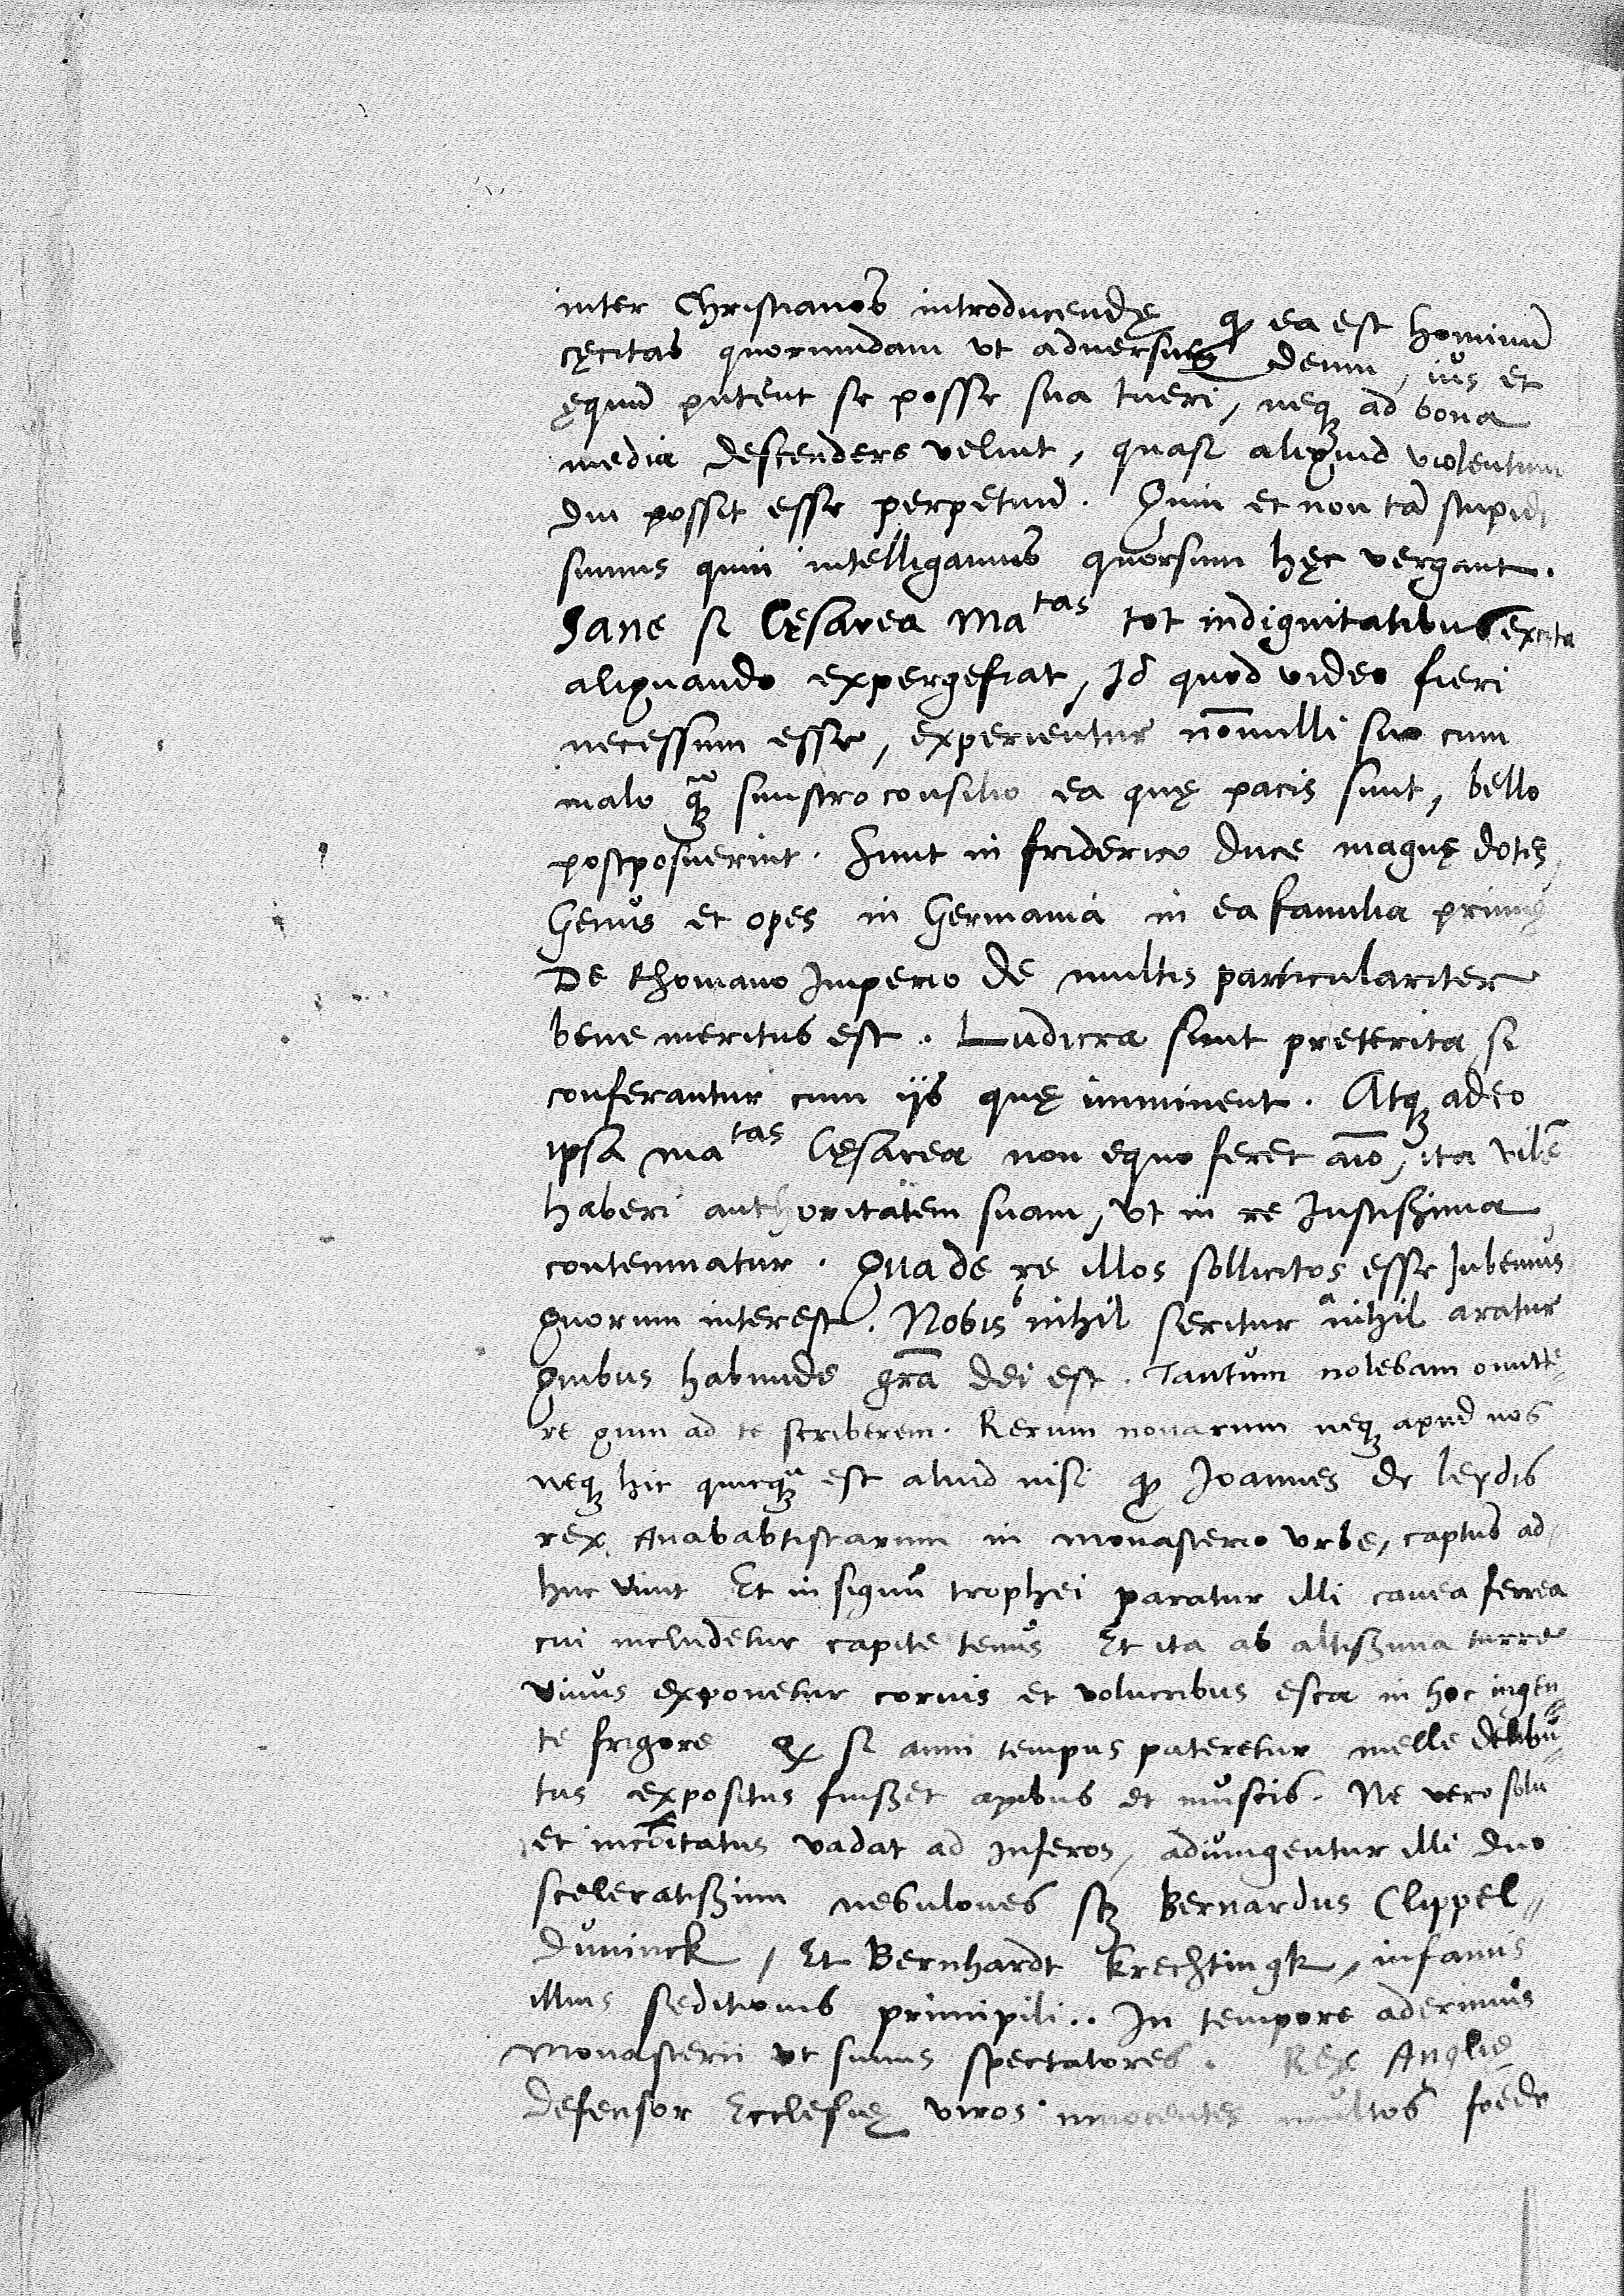 inter Christianos introducendę qȝ ea est hominū
cęcitas quorundam ut aduersus deum, ius et
ęquū putent se posse sua tueri, neqȝ ad bona
media descendere velint, quasi aliquid violentum
diu possit esse perpetuū. Quin et non tā stupidi
sumus quin intelligamus quorsum hęc vergant.
Sane si Cęsarea Ma^tas tot indignitatibus excita
aliquando expergefiat, Id quod video fieri
necessum esse, experientur nōnulli suo cum
malo qȝ̃ sinistro consilio ea quę pacis sunt, bello
postposuerint. Sunt in friderico duce magnę dotes,
Genus et opes in Germania in ea familia primę
De Rhomano Imperio de multis particulariter
bene meritus est. Ludicra sunt preterita, si
conferantur cum ijs quę imminent. Atqȝ adeo
ipsa ma^tas Cęsarea non equo feret aīo, ita vilē
haberi authoritatem suam, ut in re Iustissima
contemnatur. Qua de re illos sollicitos esse Iubemus
quorum interest. Nobis ^b nihil seritur ^a nihil aratur
Quibus habunde grā dei est. Tantum nolebam omitte-
re quum ad te scriberem. Rerum nouarum neqȝ apud nos
neqȝ hic quicqȝ̃ est aliud nisi qȝ Joannes de leydis
rex Anababtistarum in monasterio urbe, captus ad-
huc viuit Et in signū trophei paratur illi cauea ferrea
cui includetur capite tenus Et ita ab altissima turre
viuus exponetur coruis et volucribus esca in hoc ingen-
te frigore qȝ si anni tempus pateretur melle delibu-
tus expositus fuisset apibus et muscis. Ne vero solu
et incōitatus vadat ad Inferos, adiungentur illi duo
sceleratissimi nebulones scȝ Bernardus Clippel-
duninck, Et Bernhardt Krechtingk, infamis
illius seditionis primipili.. In tempore aderimus
Monasterii ut simus spectatores. Rex Anglię
defensor Ecclesię viros innocentes multos foede